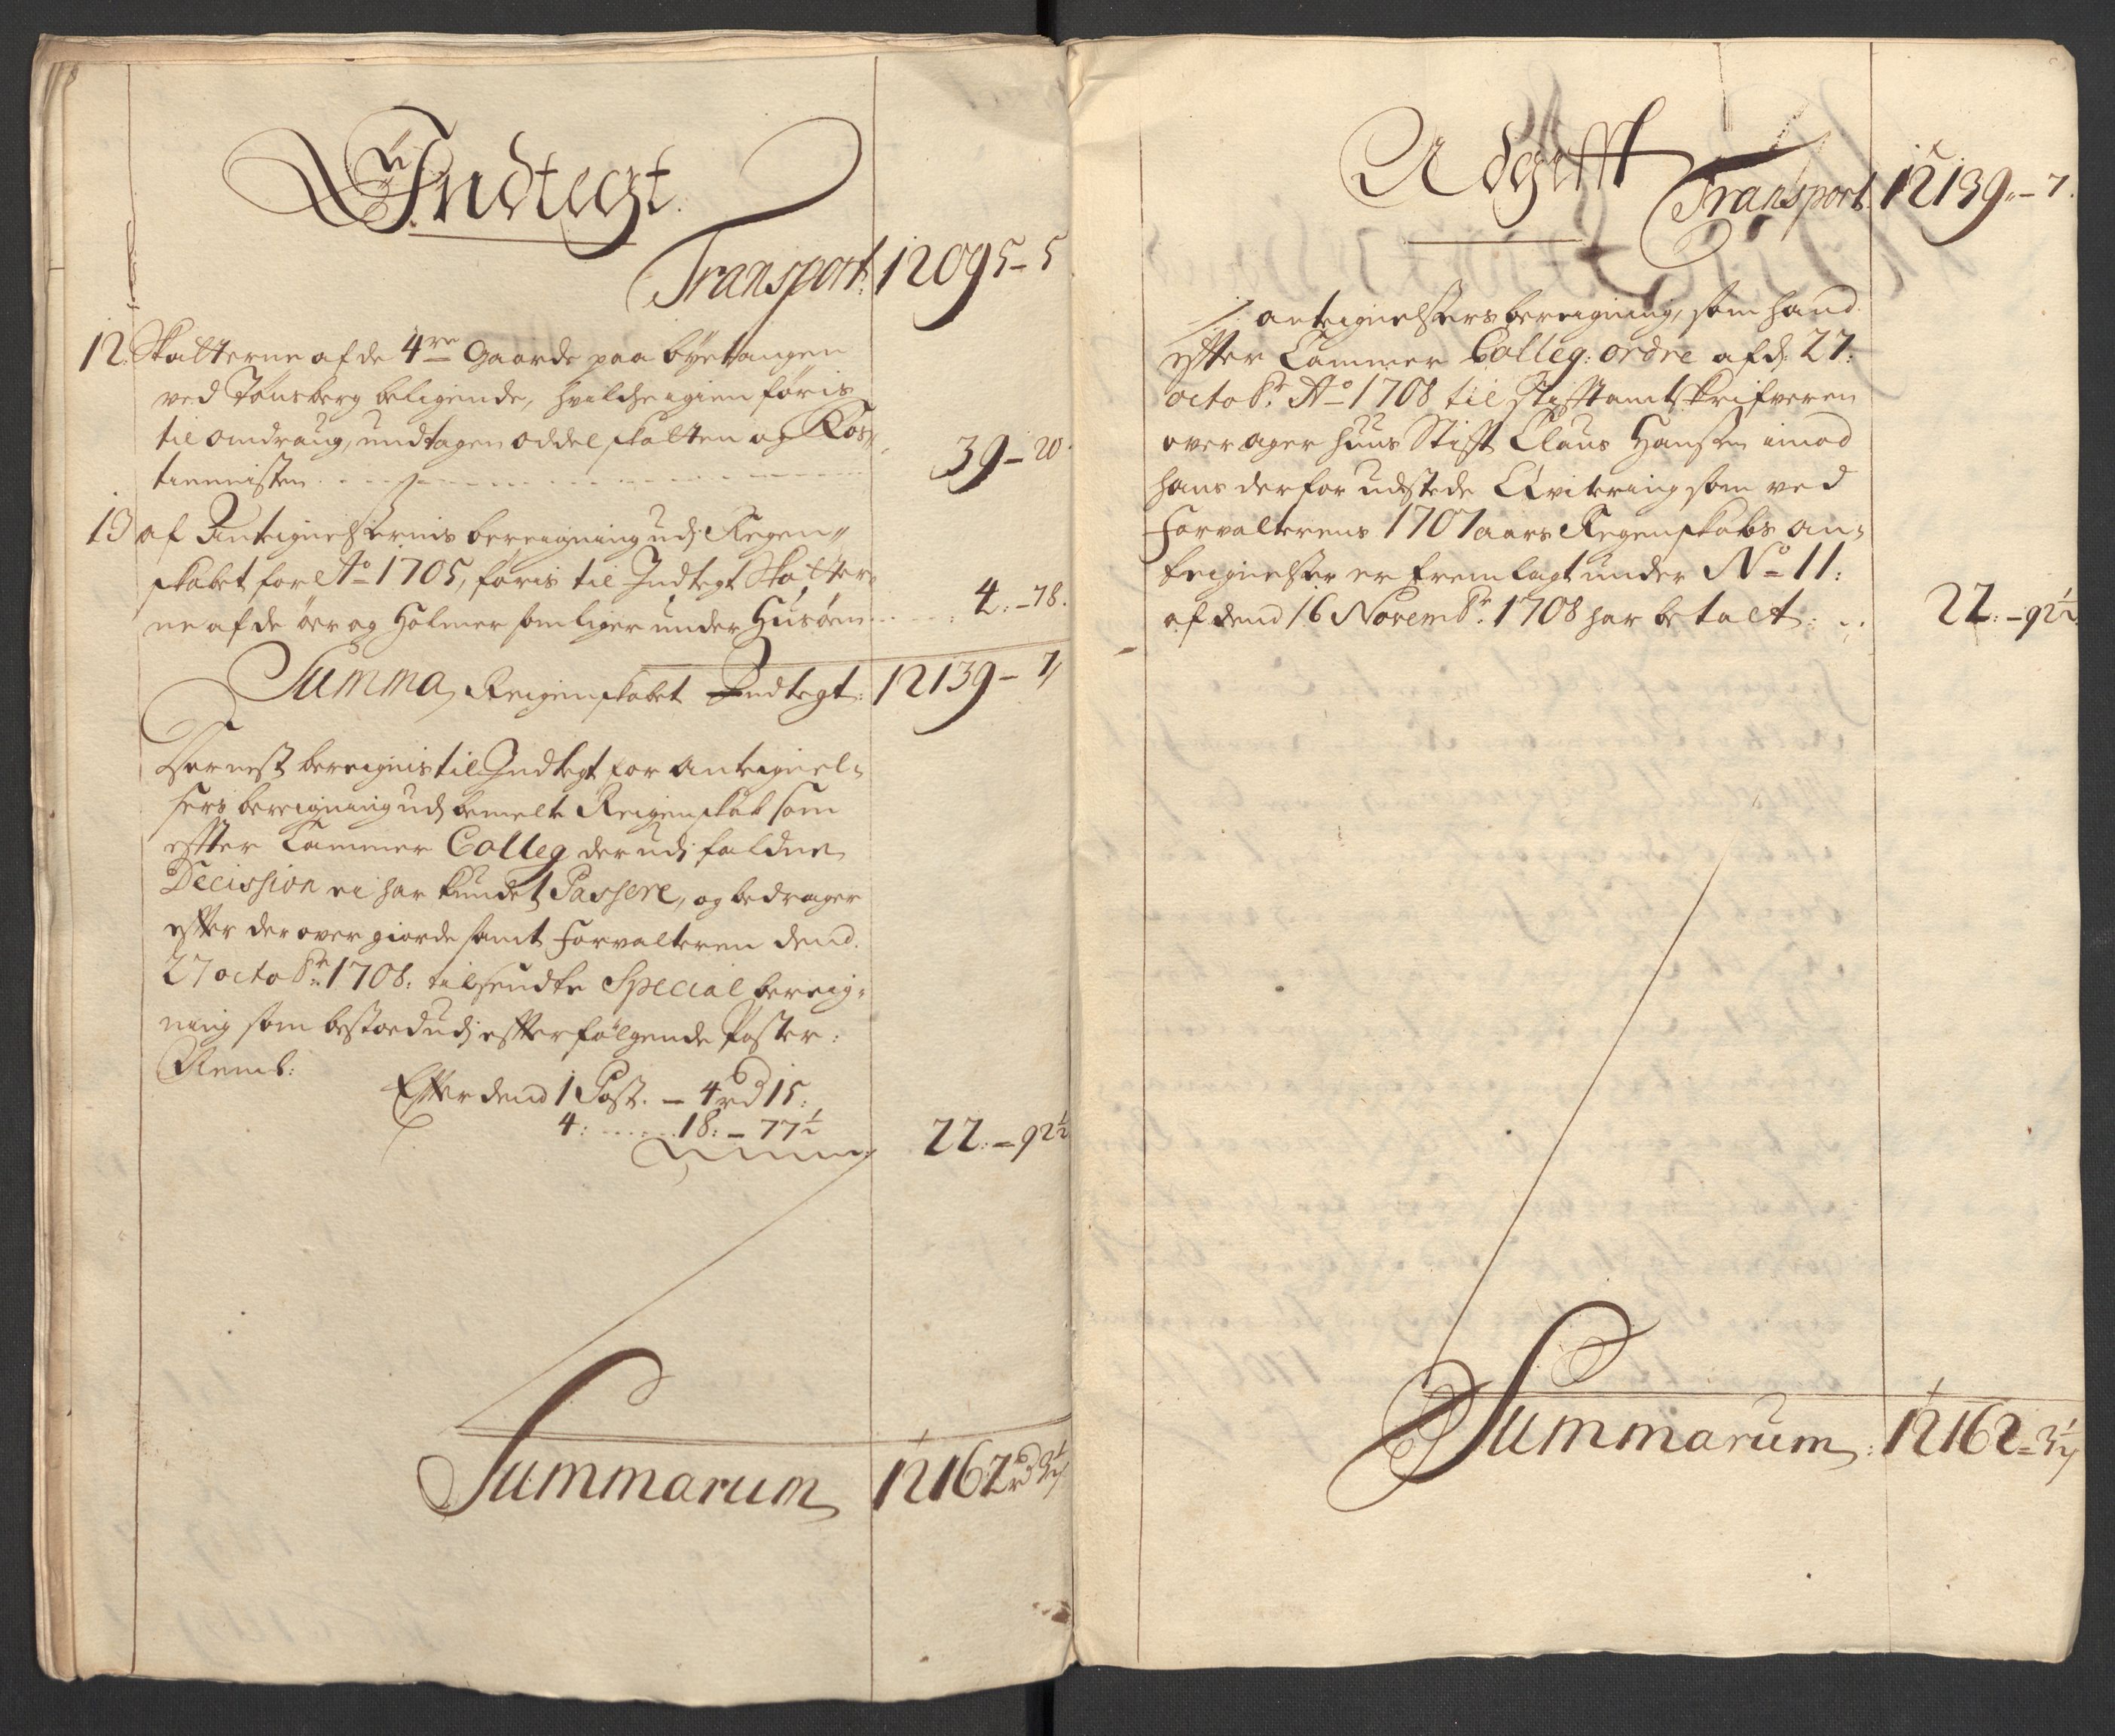 Indtegt.
Transport. 12095 - 5
12. Skatterne af de 4re gaarde paa byetangen
ved Tønsberg beligende, hvilche igien føris
til omdraug, undtagen oddel skatten og Ros„
tiennisten. 39 - 20.
13 af Anteignelsernis bereigning udj Regen„
skabet for Ao 1705, føris til Indtegt Skatter„
ne af de öer og Holmer som liger under Husöen 4: - 78.
Summa, Reigenskabet Indtegt: 12139 - 7
Dernest bereignis til Indtegt for anteignel„
sers bereigning udj bemelte Reigenskab som
efter Cammer Colleg derudj faldne
Decission ei har kundet Passere, og bedrager
efter der over giorde samt Forvalteren dend
27 octobr: 1708: tilsendte Special bereig„
ning som bestoed udj efterfølgende Poster:
Nemb:
Efter dend 1 Post. - 4rd 15:
4: 18: - 77½
22: - 92½
Summarum 12162rd 3½
Udgifft
Transport. 12139 - 7.
anteignelsers bereigning, som hand
efter Cammer Colleg: ordre af d: 27:
octobr: Ao 1708 til Stiftamtskrifveren
over ager huus Stift Claus Hansen imod
hans derfor udstede Qvitering som ved
Forvalterens 1707 aars Regenskabs an„
teignelser er fremlagt under No 11:
af dend 16 Novembr: 1708 har betalt: 22: - 92½
Summarum: 12162 - 3½